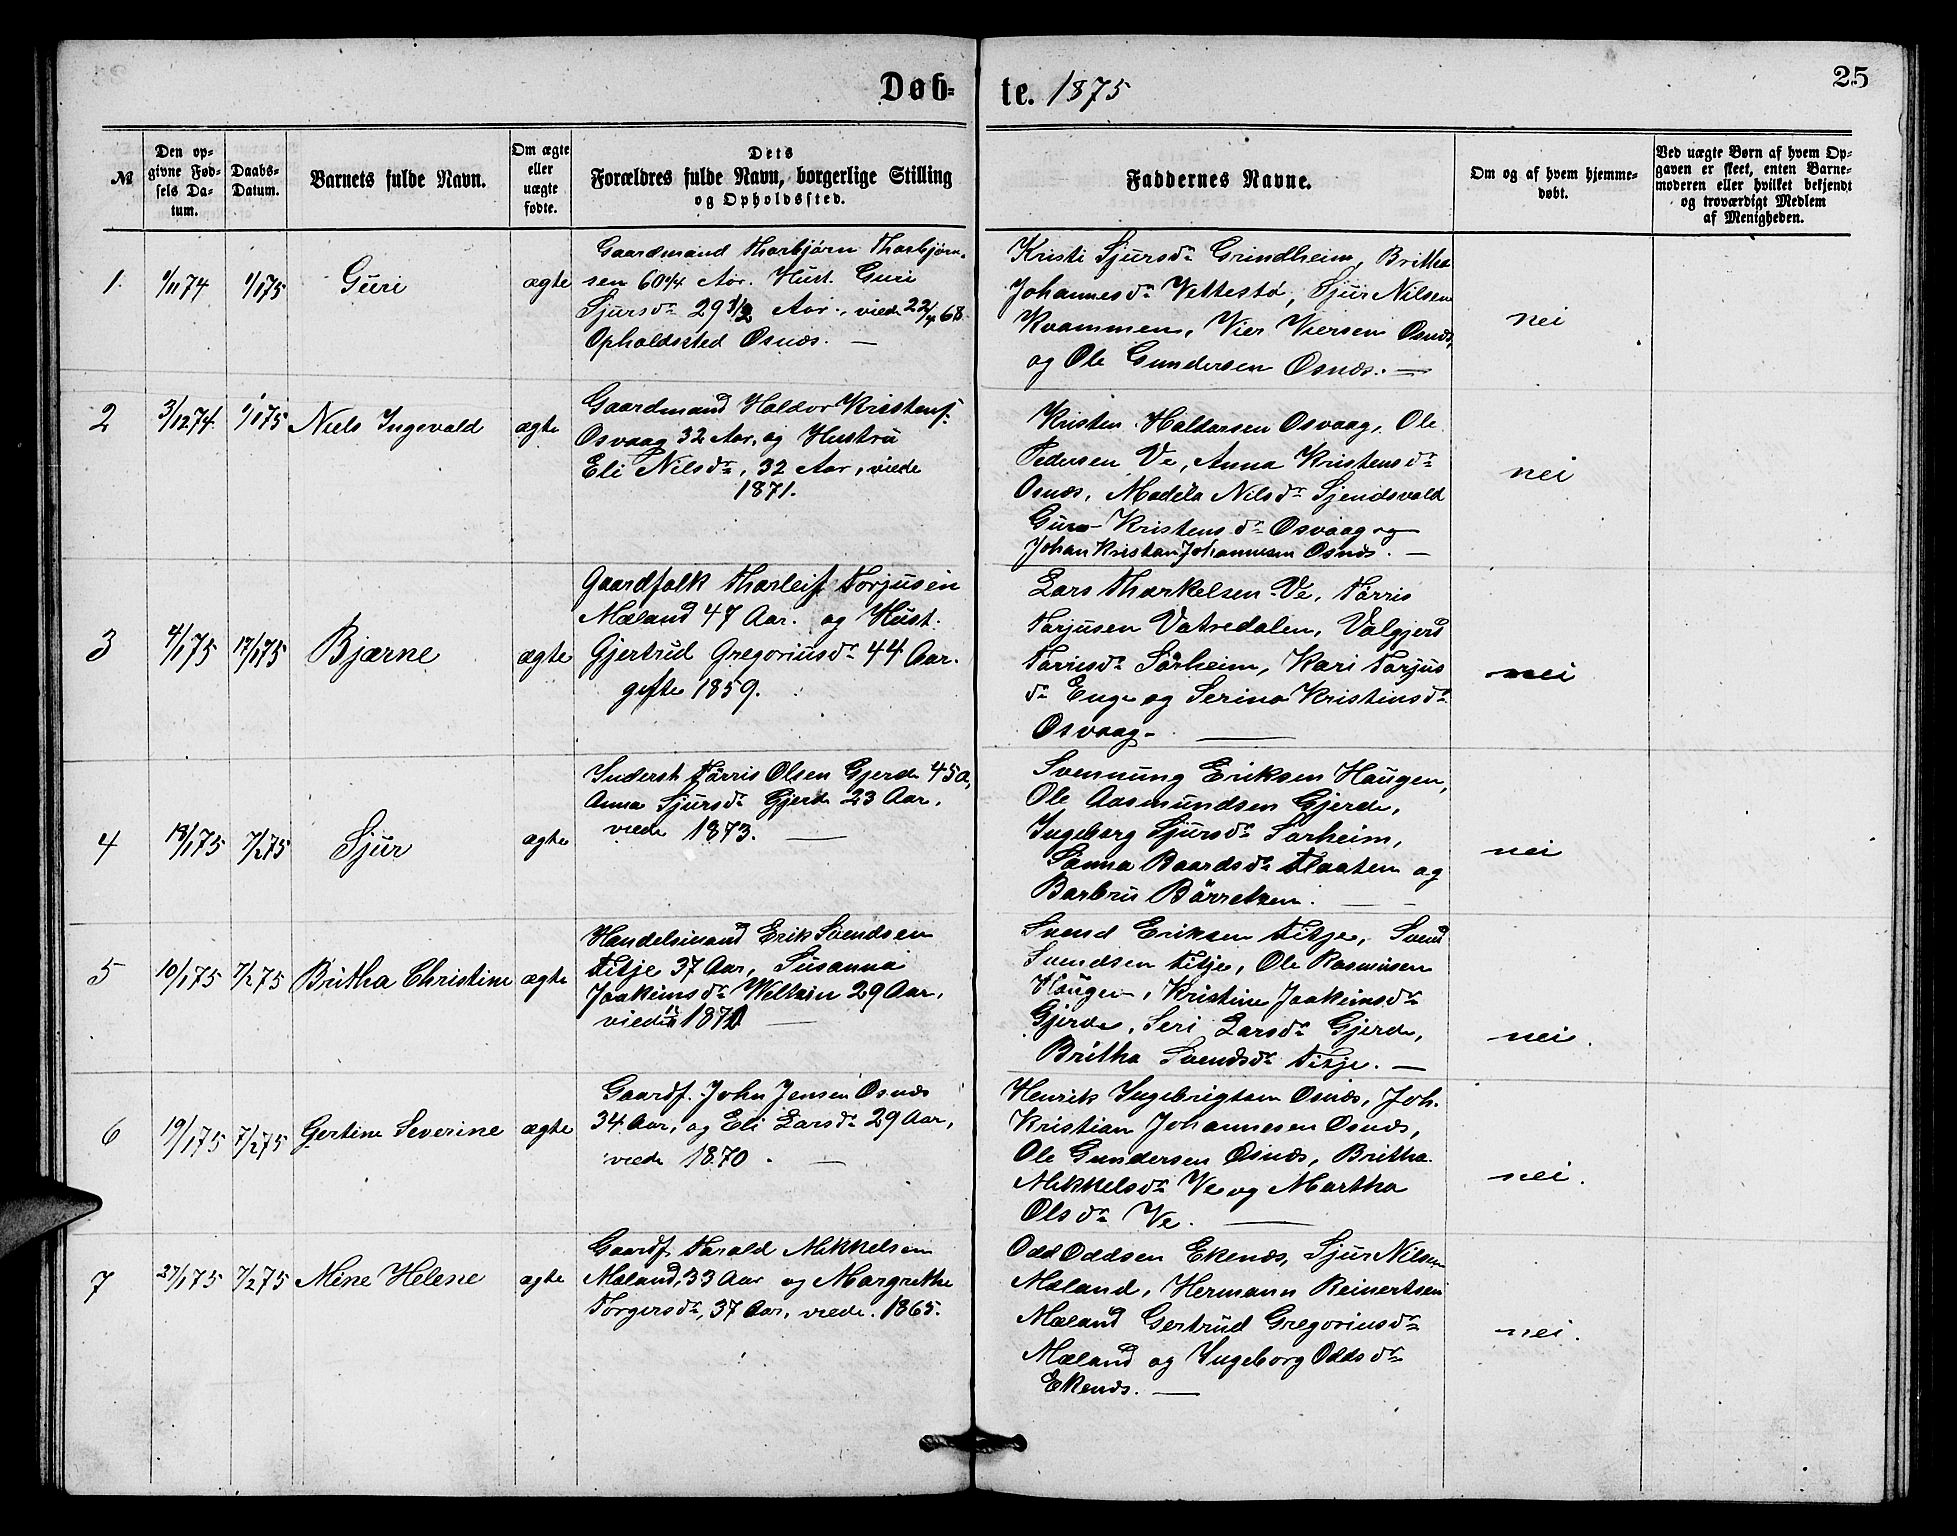 Døb-
te. 1875
25
№
Den op-
givne Fød-
sels Da-
tum.
Daabs-
Datum.
Barnets fulde Navn.
Om ægte
eller
uægte
fødte.
Dets
Forældres fulde Navn, borgerlige Stilling
og Opholdssted.
Faddernes Navne.
Om og af hvem hjemme-
døbt.
Ved uægte Børn af hvem Op-
gaven er skeet, enten Barne-
moderen eller hvilket bekjendt
og troværdigt Medlem
af Menigheden.
1.
1/11 74
1/1 75
Guri
ægte
Gaardmand Thorbjørn Thorbjørn-
sen 60 1/4 Aar. Hust. Guri
Sjursdr 29 1/2 Aar, viede 22/4 68.
Opholdssted Osnæs. —
Kristi Sjursdr Grindheim, Britha
Johannesdr Vettestø, Sjur Nilsen
Kvammen, Vier Viersen Osnæs,
og Ole Gundersen Osnæs. —
nei
2
3/12 74.
1/1 75
Niels Ingevald
ægte
Gaardmand Haldor Kristens.
Osvaag 32 Aar, og Hustru
Eli Nilsdr, 32 Aar, viede
1871.
Kristen Haldorsen Osvaag, Ole
Pedersen Ve, Anna Kristensdr
Osnæs, Madela Nilsdr Sjendsvold
Guro Kristensdr Osvaag og
Johan Kristian Johannesen Osnæs. —
nei
3
4/1 75
17/1 75
Bjærne
ægte
Gaardfolk Thorleif Torjusen
Mæland 47 Aar. og Hust.
Gjertrud Gregoriusdr 44 Aar.
gifte 1859.
Lars Thorkelsen Ve, Tørris
Torjusen Vatsedalen, Valgjerd
Tørrisdr Sørheim, Kari Torjus
dr Enge og Serina Kristinsdr
Osvaag. —
nei
4
18/1 75
7/2 75
Sjur
ægte
Inderst Tørris Olsen Gjerde 45 a,
Anna Sjursdr Gjerde 23 Aar,
viede 1873. —
Svennung Eriksen Haugen,
Ole Aasmundsen Gjerde,
Ingeborg Sjursdr Sørheim,
Sanna Baardsdr Flaaten og
Barbru Børretzen. —
nei
5
10/1 75
7/2 75
Britha Christine
ægte
Handelsmand Erik Svendsen
Fitje 37 Aar, Susanna
Joakimsdr Weltzin 29 Aar,
viede 1871 —
Svend Eriksen Fitje, Svend
Svendsen Fitje, Ole Rasmusen
Haugen, Kristine Joakimsdr
Gjerde, Seri Larsdr Gjerde,
Britha Svendsdr Fitje. —
nei.
6
19/1 75
7/2 75
Gertine Severine
ægte
Gaardf. John Jensen Osnæs
34 Aar, og Eli Larsdr 29 Aar,
viede 1870. —
Henrik Ingebrigtsen Osnæs, Joh.
Kristian Johannesen Osnæs,
Ole Gundersen Osnæs, Britha
Mikkelsdr Ve og Martha
Olsdr Ve. —
nei.
7
27/1 75
7/2 75
Mine Helene
ægte
Gaardf. Tarald Mikkelsen
Mæland, 33 Aar og Margrethe
Torgersdr, 37 Aar, viede. 1865.
Odd Oddsen Ekenæs, Sjur Nilsen
Mæland, Hermann Reinertsen
Mæland Gertrud Gregoriusdr
Mæland og Ingeborg Oddsdr
Ekenæs. —
nei.